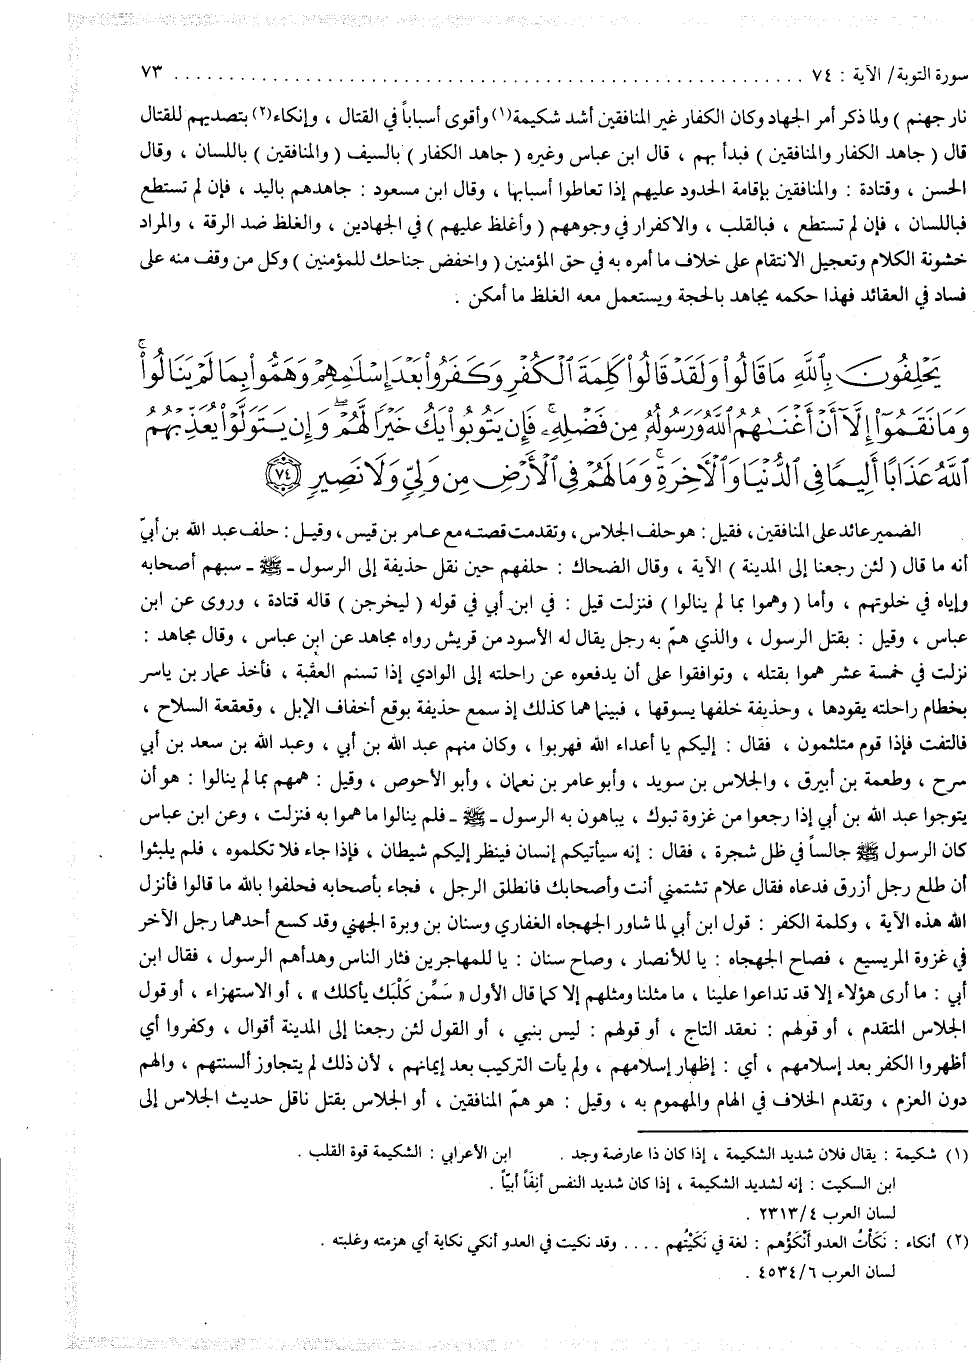 سورة التوبة/ الآية : ٧٤ ............................................................ ٧٣
نار جهنم ) ولما ذكر أمر الجهاد وكان الكفار غير المنافقين أشد شكيمة(١) وأقوى أسباباً في القتال ، وإنكاء(٢) بتصديهم للقتال
قال ( جاهد الكفار والمنافقين ) فبدأ بهم ، قال ابن عباس وغيره ( جاهد الكفار ) بالسيف ( والمنافقين ) باللسان ، وقال
الحسن ، وقتادة : والمنافقين بإقامة الحدود عليهم إذا تعاطوا أسبابها ، وقال ابن مسعود : جاهدهم باليد ، فإن لم تستطع
فباللسان ، فإن لم تستطع ، فبالقلب ، والاكفرار في وجوههم ( وأغلظ عليهم ) في الجهادين ، والغلظ ضد الرقة ، والمراد
خشونة الكلام وتعجيل الانتقام على خلاف ما أمره به في حق المؤمنين ( واخفض جناحك للمؤمنين ) وكل من وقف منه على
فساد في العقائد فهذا حكمه يجاهد بالحجة ويستعمل معه الغلظ ما أمكن .
يَحْلِفُونَ بِٱللَّهِ مَا قَالُوا۟ وَلَقَدْ قَالُوا۟ كَلِمَةَ ٱلْكُفْرِ وَكَفَرُوا۟ بَعْدَ إِسْلَٰمِهِمْ وَهَمُّوا۟ بِمَا لَمْ يَنَالُوا۟ۚ
وَمَا نَقَمُوٓا۟ إِلَّآ أَنْ أَغْنَىٰهُمُ ٱللَّهُ وَرَسُولُهُۥ مِن فَضْلِهِۦۚ فَإِن يَتُوبُوا۟ يَكُ خَيْرًا لَّهُمْۖ وَإِن يَتَوَلَّوْا۟ يُعَذِّبْهُمُ
ٱللَّهُ عَذَابًا أَلِيمًا فِى ٱلدُّنْيَا وَٱلْأَخِرَةِۚ وَمَا لَهُمْ فِى ٱلْأَرْضِ مِن وَلِىٍّ وَلَا نَصِيرٍ ٧٤
الضمير عائد على المنافقين، فقيل : هو حلف الجلاس، وتقدمت قصته مع عامر بن قيس، وقيل : حلف عبد الله بن أبيّ
أنه ما قال ( لئن رجعنا إلى المدينة ) الآية ، وقال الضحاك : حلفهم حين نقل حذيفة إلى الرسول ـ ﷺ ـ سبهم أصحابه
وإياه في خلوتهم ، وأما ( وهموا بما لم ينالوا ) فنزلت قيل : في ابن أبي في قوله ( ليخرجن ) قاله قتادة ، وروى عن ابن
عباس ، وقيل : بقتل الرسول ، والذي همّ به رجل يقال له الأسود من قريش رواه مجاهد عن ابن عباس ، وقال مجاهد :
نزلت في خمسة عشر هموا بقتله ، وتوافقوا على أن يدفعوه عن راحلته إلى الوادي إذا تسنم العقبة ، فأخذ عمار بن ياسر
بخطام راحلته يقودها ، وحذيفة خلفها يسوقها ، فبينما هما كذلك إذ سمع حذيفة بوقع أخفاف الإبل ، وقعقعة السلاح ،
فالتفت فإذا قوم متلثمون ، فقال : إليكم يا أعداء الله فهربوا ، وكان منهم عبد الله بن أبي ، وعبد الله بن سعد بن أبي
سرح ، وطعمة بن أبيرق ، والجلاس بن سويد ، وأبو عامر بن نعمان ، وأبو الأحوص ، وقيل : همهم بما لم ينالوا : هو أن
يتوجوا عبد الله بن أبي إذا رجعوا من غزوة تبوك ، يباهون به الرسول ـ ﷺ ـ فلم ينالوا ما هموا به فنزلت ، وعن ابن عباس
كان الرسول ﷺ جالساً في ظل شجرة ، فقال : إنه سيأتيكم إنسان فينظر إليكم شيطان ، فإذا جاء فلا تكلموه ، فلم يلبثوا
أن طلع رجل أزرق فدعاه فقال علام تشتمني أنت وأصحابك فانطلق الرجل ، فجاء بأصحابه فحلفوا بالله ما قالوا فأنزل
الله هذه الآية ، وكلمة الكفر : قول ابن أبي لما شاور الجهجاه الغفاري وسنان بن وبرة الجهني وقد كسع أحدهما رجل الآخر
في غزوة المريسيع ، فصاح الجهجاه : يا للأنصار ، وصاح سنان : يا للمهاجرين فثار الناس وهدأهم الرسول ، فقال ابن
أبي : ما أرى هؤلاء إلا قد تداعوا علينا ، ما مثلنا ومثلهم إلا كما قال الأول « سَمِّن كَلْبَك يأكلك » ، أو الاستهزاء ، أو قول
الجلاس المتقدم ، أو قولهم : نعقد التاج ، أو قولهم : ليس بنبي ، أو القول لئن رجعنا إلى المدينة أقوال ، وكفروا أي
أظهروا الكفر بعد إسلامهم ، أي : إظهار إسلامهم ، ولم يأت التركيب بعد إيمانهم ، لأن ذلك لم يتجاوز ألسنتهم ، والهم
دون العزم ، وتقدم الخلاف في الهام والمهموم به ، وقيل : هو همّ المنافقين ، أو الجلاس بقتل ناقل حديث الجلاس إلى
(١) شكيمة : يقال فلان شديد الشكيمة ، إذا كان ذا عارضة وجد . ابن الأعرابي : الشكيمة قوة القلب .
ابن السكيت : إنه لشديد الشكيمة ، إذا كان شديد النفس أَنِفاً أبيّاً .
لسان العرب ٢٣١٣/٤ .
(٢) أنكاء : نَكَأْتُ العدو أَنْكَؤُهم : لغة في نَكَيْتُهم .... وقد نكيت في العدو أنكي نكاية أي هزمته وغلبته .
لسان العرب ٤٥٣٤/٦ .